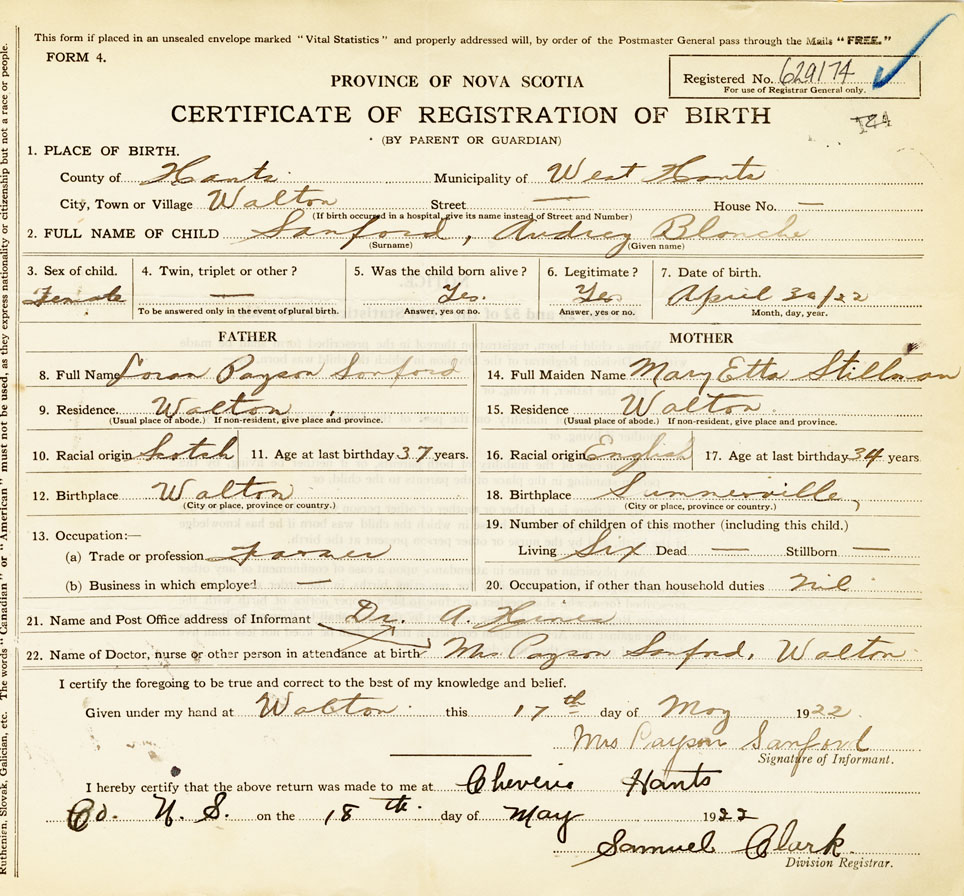 This form if placed in an unsealed envelope marked "Vital Statistics" and properly addressed will, by order of the Postmaster General pass through the Mails "FREE."
FORM 4.
PROVINCE OF NOVA SCOTIA
Registered No. 629174
For use of Registrar General only.
CERTIFICATE OF REGISTRATION OF BIRTH
(BY PARENT OR GUARDIAN)
1. PLACE OF BIRTH.
County of Hants Municipality of West Hants
City, Town or Village Walton Street — House No. —
(If birth occurred in a hospital, give its name instead of Street and Number)
2. FULL NAME OF CHILD Sanford, Audrey Blanche
(Surname) (Given name)
3. Sex of child. 4. Twin, triplet or other? 5. Was the child born alive? 6. Legitimate? 7. Date of birth.
Female — Yes. Yes April 30/22
To be answered only in the event of plural birth. Answer, yes or no. Answer, yes or no. Month, day, year.
FATHER MOTHER
8. Full Name Loran Payson Sanford 14. Full Maiden Name Mary Etta Stillman
9. Residence Walton 15. Residence Walton
(Usual place of abode.) If non-resident, give place and province. (Usual place of abode.) If non-resident, give place and province.
10. Racial origin Scotch 11. Age at last birthday 37 years. 16. Racial origin English 17. Age at last birthday 34 years
12. Birthplace Walton 18. Birthplace Summerville,
(City or place, province or country.) (City or place, province or country.)
13. Occupation:— 19. Number of children of this mother (including this child.)
(a) Trade or profession Farmer Living Six Dead — Stillborn —
(b) Business in which employed — 20. Occupation, if other than household duties nil
21. Name and Post Office address of Informant Dr. A.
22. Name of Doctor, nurse or other person in attendance at birth Mrs Payson Sanford, Walton
I certify the foregoing to be true and correct to the best of my knowledge and belief.
Given under my hand at Walton this 17th day of May 1922.
Mrs Payson Sanford
Signature of Informant.
I hereby certify that the above return was made to me at Cheverie Hants
Co. N. S. on the 18th. day of May 1922
Samuel Clark.
Division Registrar.
Ruthenien, Slovak, Galician, etc. The words "Canadian" or "American" must not be used, as they express nationality or citizenship but not a race or people.